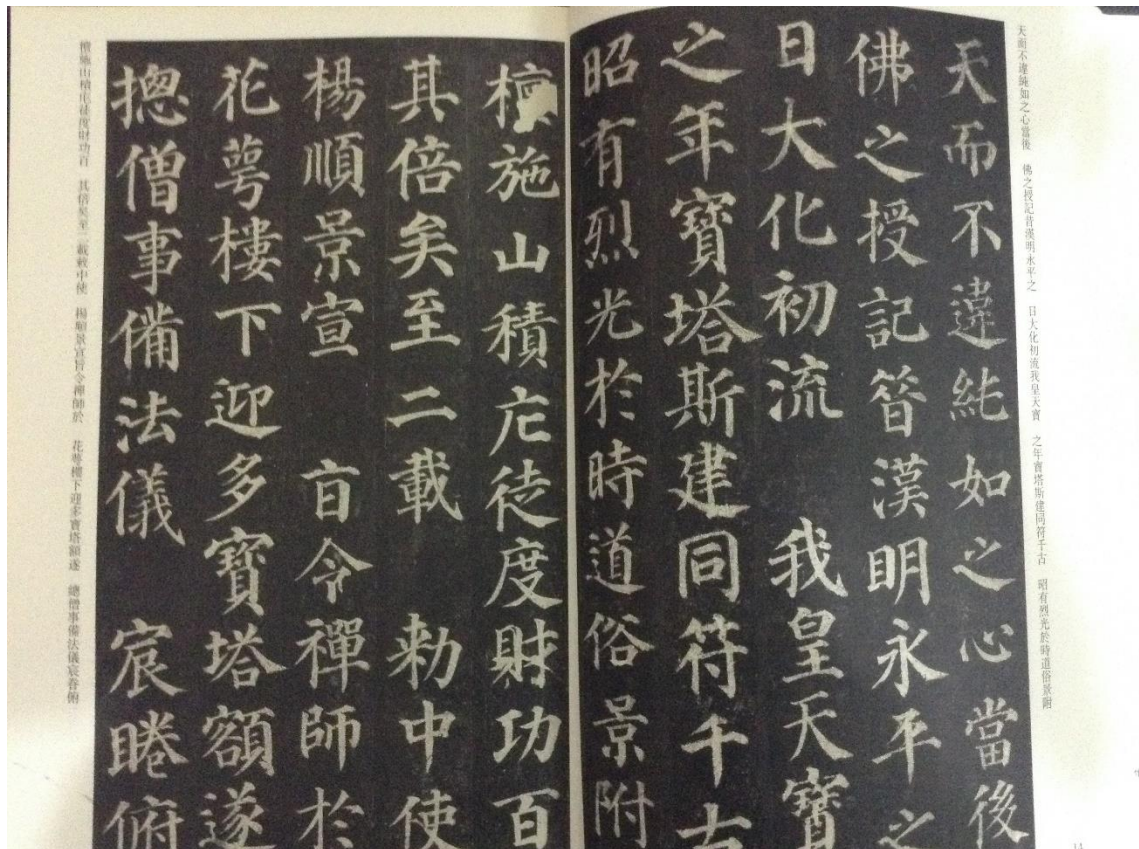 天而不違純如之心當後 佛之授記昔漢明永平之 日大化初流我皇天寶 之年寶塔斯建同符千古 昭有烈光於時道俗景附
天而不違純如之心當後
佛之授記昔漢明永平之
日大化初流 我皇天寶
之年寶塔斯建同符千古
昭有烈光於時道俗景附
檀施山積庀徒度財功百
其倍矣至二載 敕中使
楊順景宣 旨令禪師於
花萼樓下迎多寶塔額遂
摠僧事備法儀 宸睠俯
檀施山積庀徒度財功百 其倍矣至二載敕中使 楊順景宣旨令禪師於 花萼樓下迎多寶塔額遂 總僧事備法儀宸眷俯